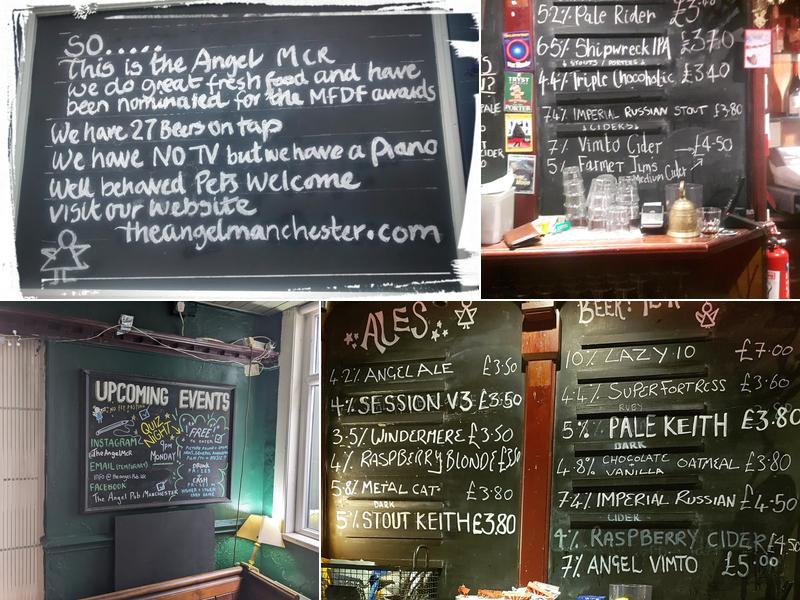 SO.....
This is the Angel MCR
We do great fresh food and have
been nominated for the MFDF awards
We have 27 Beers on tap
We have NO TV but we have a Piano
Well behaved Pets Welcome
Visit our Website
theangelmanchester.com
5.2% Pale Rider
6.5% Shipwreck IPA £3.70
& STOUTS / PORTERS &
4.4% Triple Chocoholic £3.40
7.4% IMPERIAL RUSSIAN STOUT £3.80
& CIDERS &
7% Vimto Cider £4.50
5% Farmer Jim's
Medium Cider
TRYST
PORTER
PALE
CIDER
UPCOMING EVENTS
QUIZ
NIGHT
9PM
MONDAY
FREE
TO ENTER
DRINK
PRIZES
CASH
INSTAGRAM
@TheAngelMcr
EMAIL
info@theangelpub.uk
FACEBOOK
The Angel Pub Manchester
ALES
4.2% ANGEL ALE £3.50
4% SESSION V3 £3.50
3.5% WINDERMERE £3.50
4% RASPBERRY BLONDE £3.50
5.8% METAL CAT £3.80
DARK
5% STOUT KEITH £3.80
BEER
10% LAZY 10 £7.00
4.4% SUPER FORTRESS £3.60
RUBY
5% PALE KEITH £3.80
DARK
4.8% CHOCOLATE VANILLA OATMEAL £3.80
7.4% IMPERIAL RUSSIAN £4.50
CIDER
4% RASPBERRY CIDER £4.50
7% ANGEL VIMTO £5.00